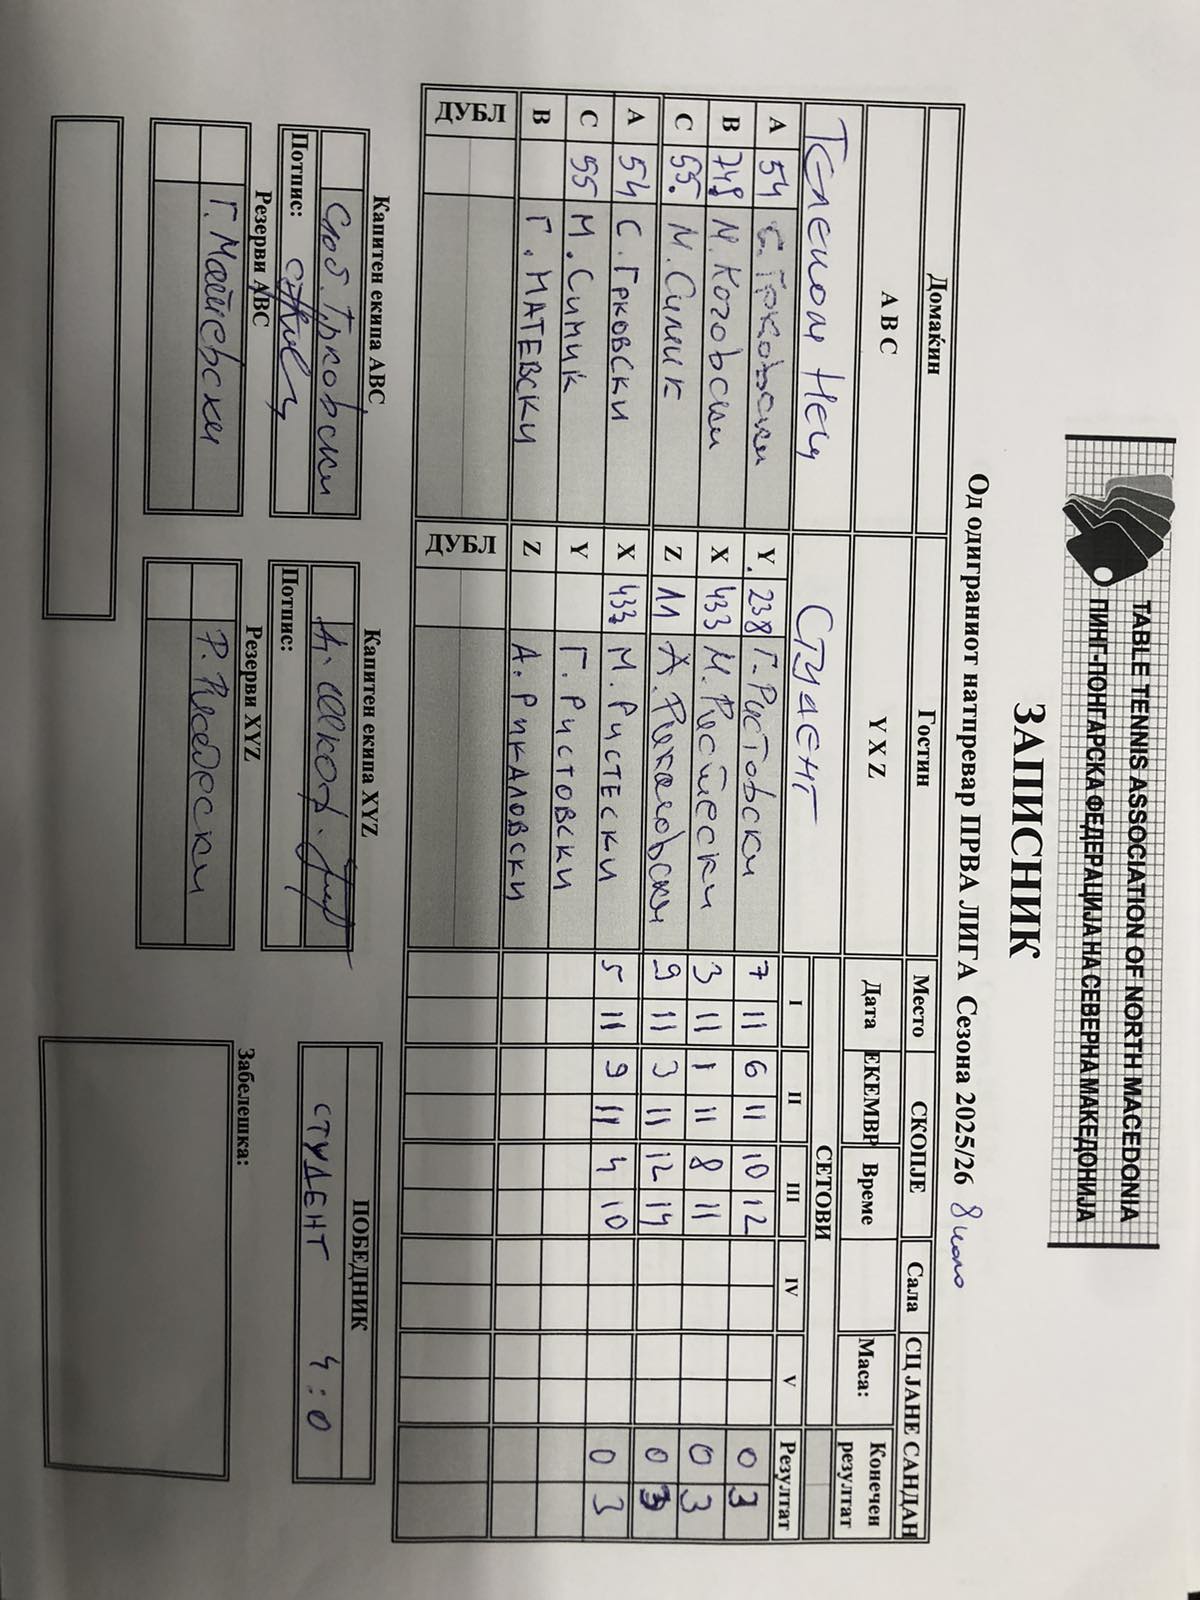 TABLE TENNIS ASSOCIATION OF NORTH MACEDONIA
ПИНГ-ПОНГАРСКА ФЕДЕРАЦИЈА НА СЕВЕРНА МАКЕДОНИЈА
ЗАПИСНИК
Од одиграниот натпревар ПРВА ЛИГА Сезона 2025/26 8 коло
Домаќин Гостин Место СКОПЈЕ Сала СЦ ЈАНЕ САНДАН
A B C Y X Z Дата ЕКЕМВР Време Маса: Конечен резултат
СТУДЕНТ СЕТОВИ
I II III IV V Резултат
A 54 С. Грковски Y. 238 Г. Ристовски 7 11 6 11 10 12 0 3
B 748 М. Коговски X 433 М. Ристески 3 11 1 11 8 11 0 3
C 55. М. Симиќ Z 11 А. Рикаловски 9 11 3 11 12 14 0 3
A 54 С. ГРКОВСКИ X 433 М. РИСТЕСКИ 5 11 9 11 4 10 0 3
C 55 М. СИМИЌ Y Г. РИСТОВСКИ
B Г. МАТЕВСКИ Z А. РИКАЛОВСКИ
ДУБЛ ДУБЛ
Капитен екипа ABC Капитен екипа XYZ ПОБЕДНИК
Слоб. Грковски СТУДЕНТ 4:0
Потпис: Потпис:
Резерви ABC Резерви XYZ Забелешка:
Г. Матевски